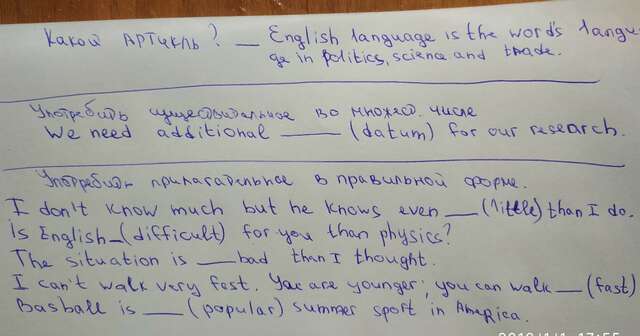 Какой артикль? _ English language is the word's langua
ge in politics, science and trade.
Употребить существительное во множест. числе
We need additional ____ (datum) for our research.
Употребить прилагательное в правильной форме.
I don't know much but he knows even ___ (little) than I do.
Is English _ (difficult) for you than physics?
The situation is ___ bad than I thought.
I can't walk very fast. You are younger; you can walk __ (fast)
Basball is ___ (popular) summer sport in America.